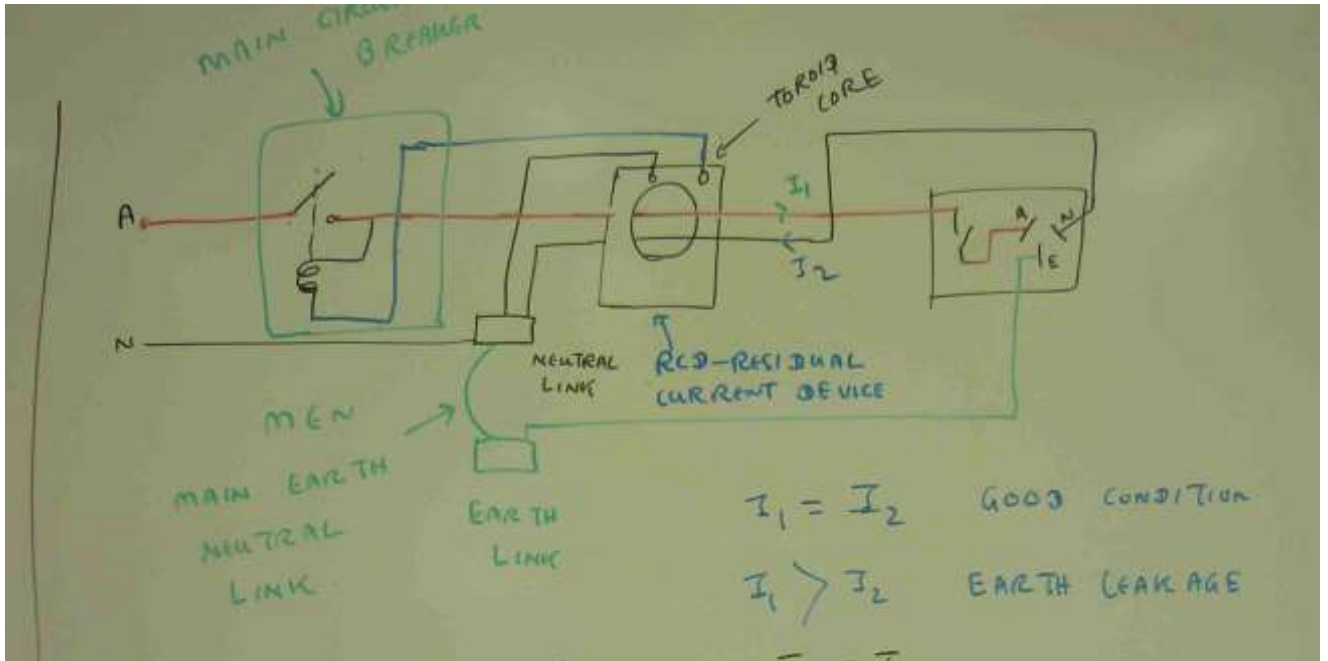 MAIN
BREAKER
TOROID
CORE
A
I1
I2
A
N
E
N
NEUTRAL
LINK
RCD-RESIDUAL
CURRENT DEVICE
MEN
MAIN EARTH
NEUTRAL
LINK
EARTH
LINK
I1 = I2 GOOD CONDITION
I1 > I2 EARTH LEAKAGE